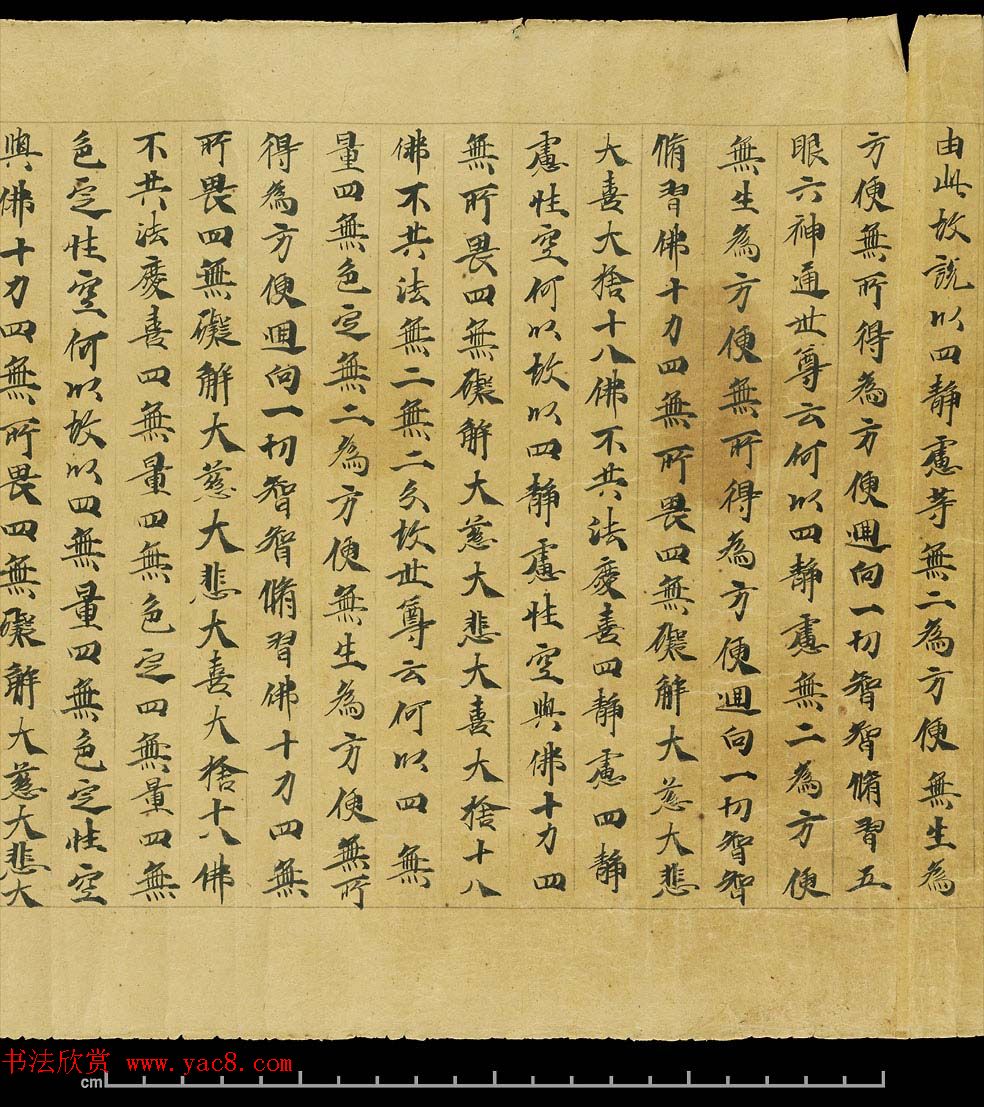 由此故說以四靜慮等無二為方便無生為
方便無所得為方便迴向一切智智脩習五
眼六神通世尊云何以四靜慮無二為方便
無生為方便無所得為方便迴向一切智智
脩習佛十力四無所畏四無礙解大慈大悲
大喜大捨十八佛不共法慶喜四靜慮四靜
慮性空何以故以四靜慮性空與佛十力四
無所畏四無礙解大慈大悲大喜大捨十八
佛不共法無二無二分故世尊云何以四無
量四無色定無二為方便無生為方便無所
得為方便迴向一切智智脩習佛十力四無
所畏四無礙解大慈大悲大喜大捨十八佛
不共法慶喜四無量四無色定四無量四無
色定性空何以故以四無量四無色定性空
與佛十力四無所畏四無礙解大慈大悲大
书法欣赏 www.yac8.com
cm